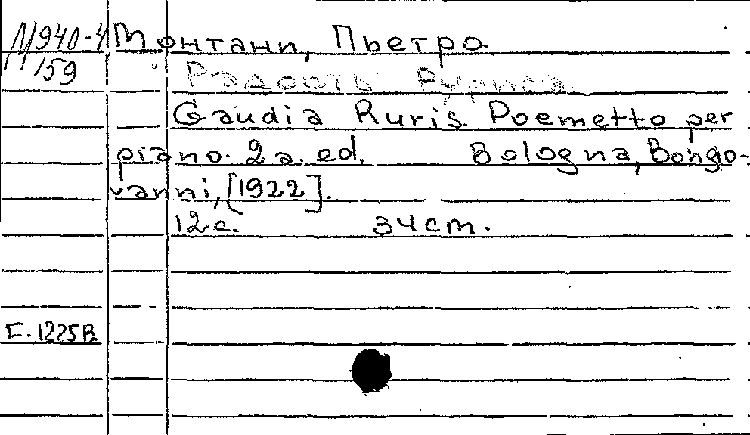 М940-4 Монтани, Пьетро.
159 Радость Руриса
Gaudia Ruris. Poemetto per
piano. 2a. ed. Bologna, Bongo-
vanni, [1922].
12 с. 34 cm.
Г. 1225В